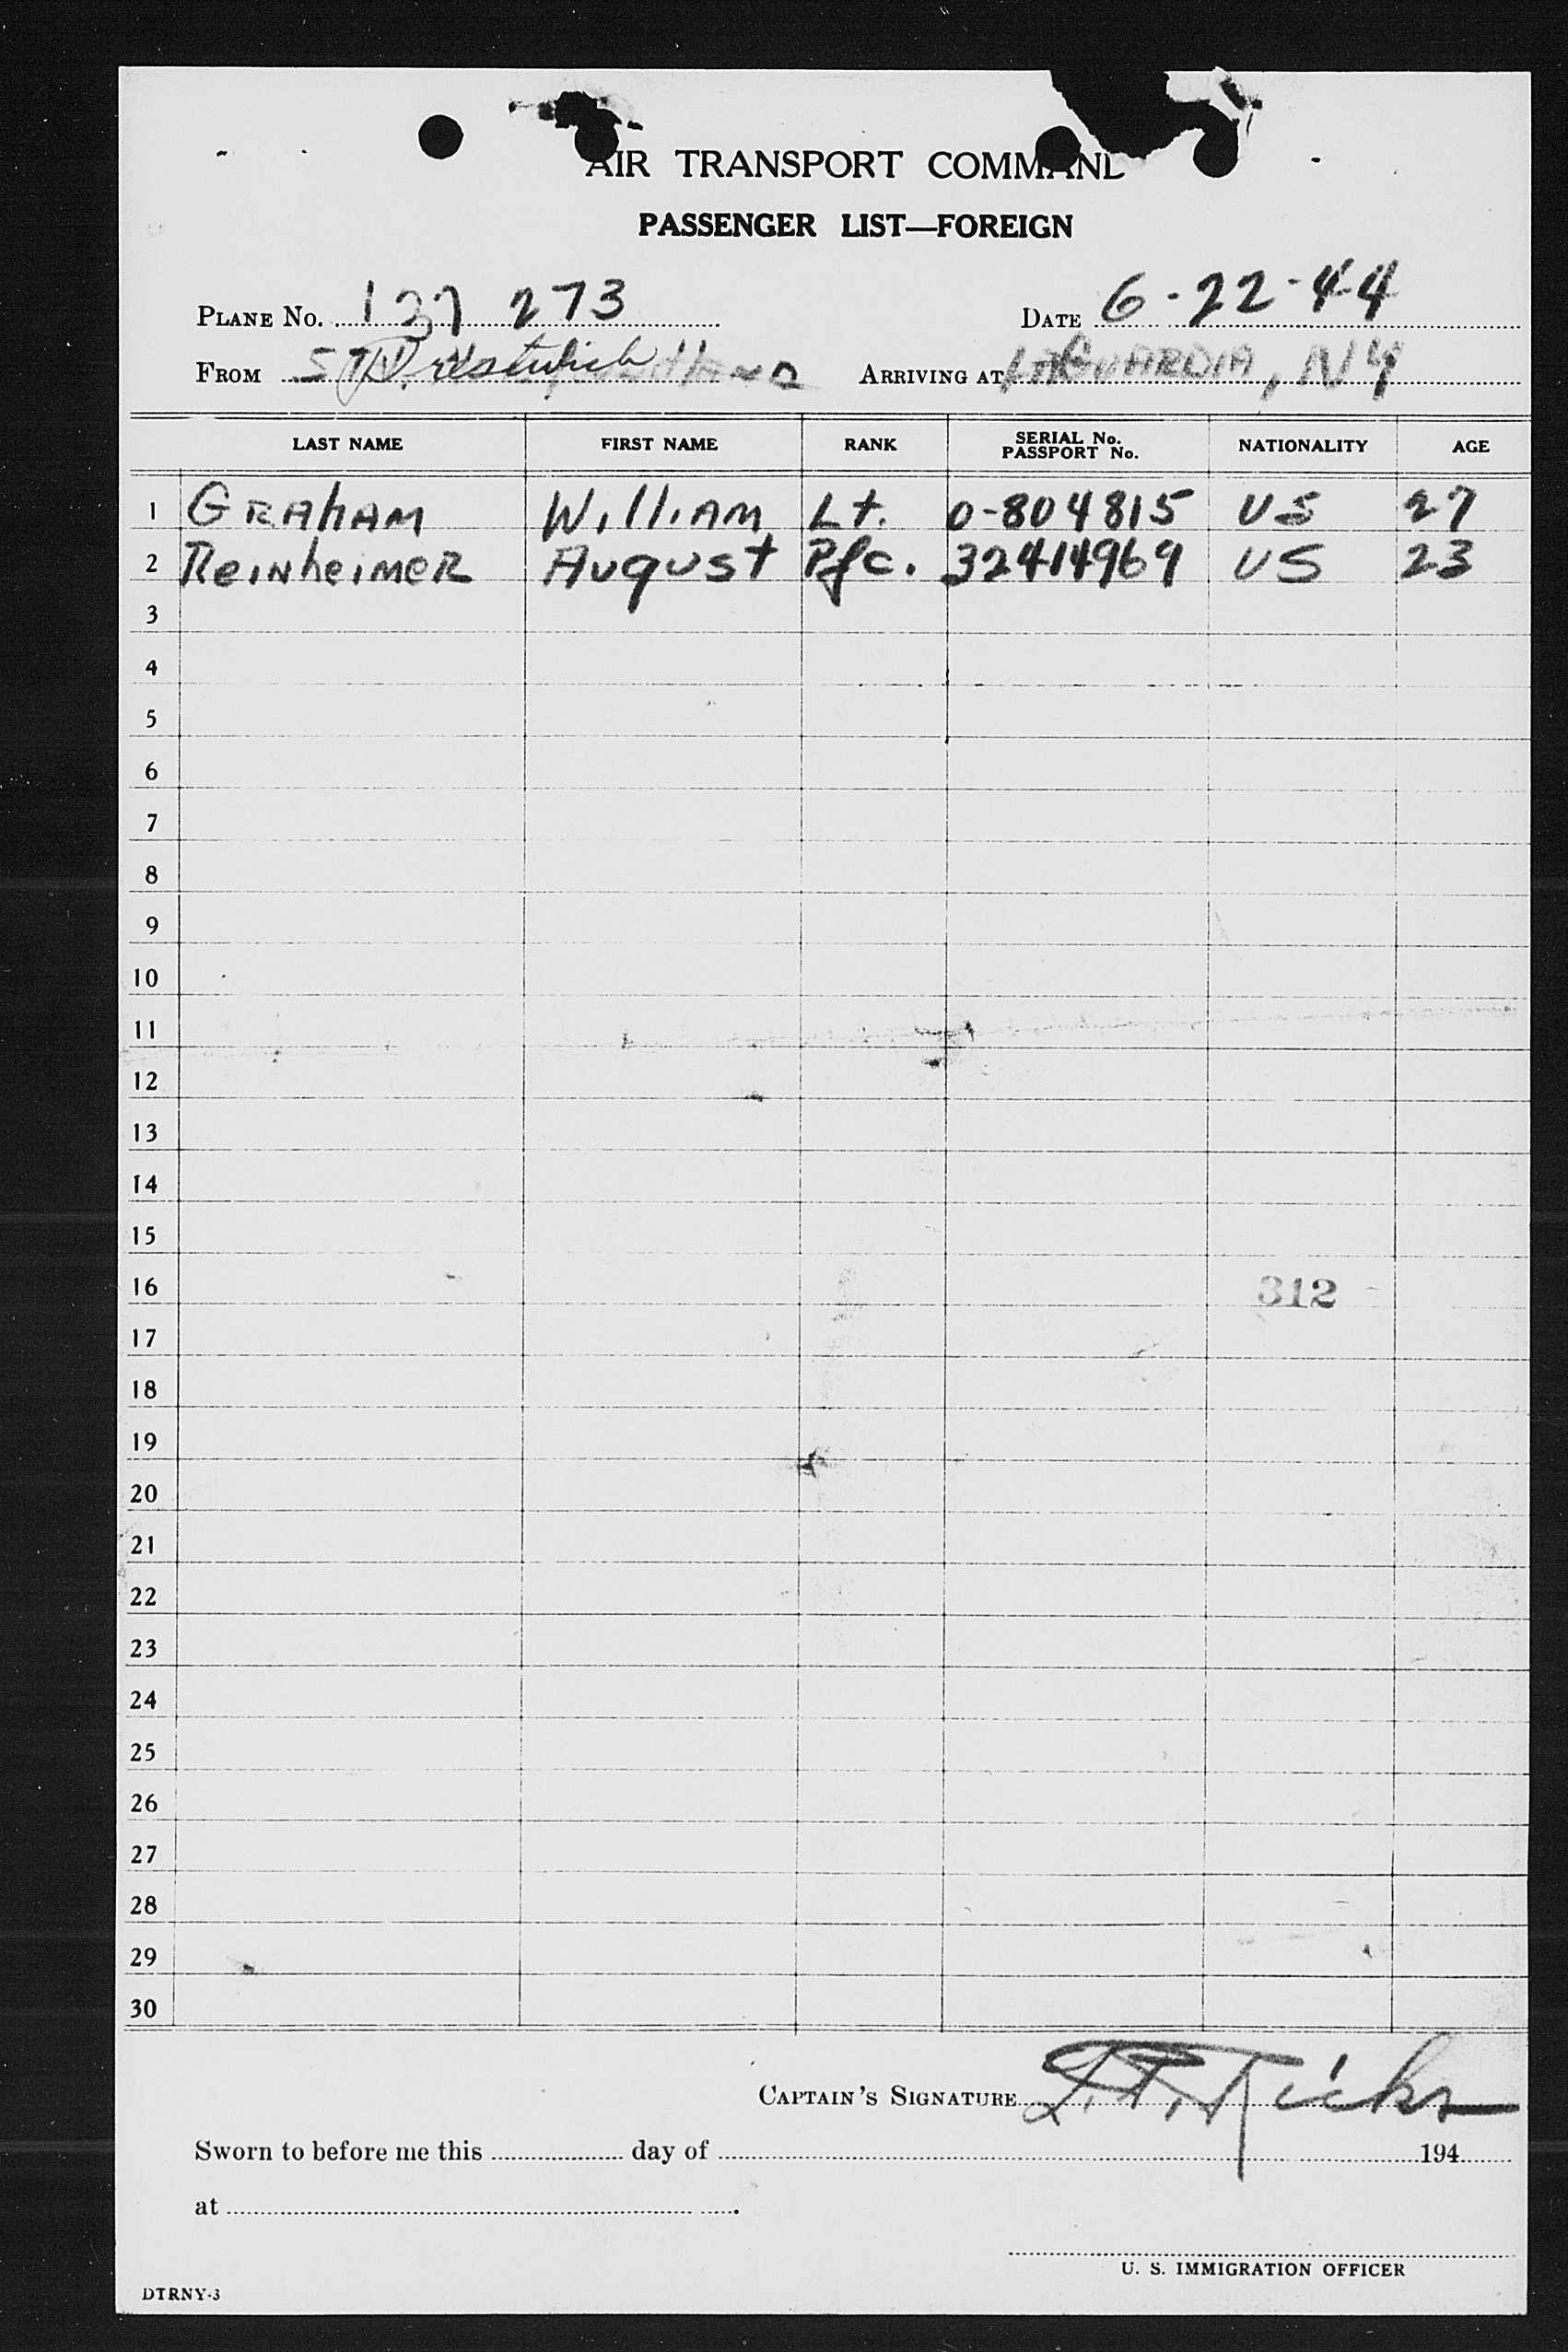 AIR TRANSPORT COMMAND
PASSENGER LIST—FOREIGN
PLANE No. 137 273 DATE 6-22-44
FROM Prestwich ARRIVING AT LAGUARDIA, NY
LAST NAME FIRST NAME RANK SERIAL No. PASSPORT No. NATIONALITY AGE
1 GRAhAM WilliAM Lt. 0-804815 US 27
2 ReiNheiMeR August Pfc. 32414969 US 23
3
4
5
6
7
8
9
10
11
12
13
14
15
16 312
17
18
19
20
21
22
23
24
25
26
27
28
29
30
CAPTAIN'S SIGNATURE Ricks
Sworn to before me this day of 194
at .
U. S. IMMIGRATION OFFICER
DTRNY-3